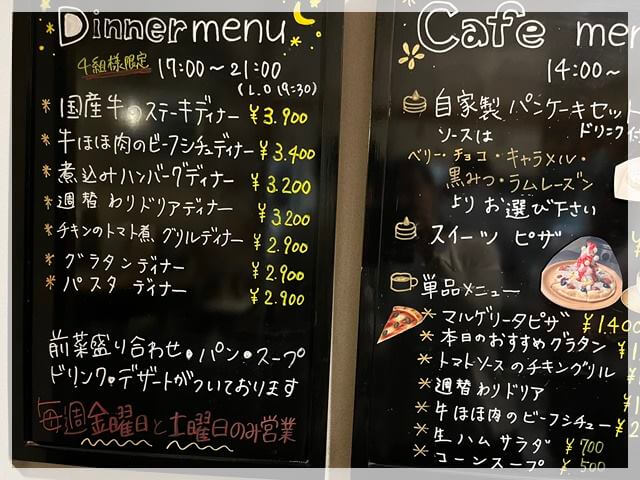 Dinner menu
4組様限定 17:00～21:00
(L.O 19:30)
* 国産牛のステーキディナー ¥3.900
* 牛ほほ肉のビーフシチューディナー ¥3.400
* 煮込みハンバーグディナー ¥3.200
* 週替わりドリアディナー ¥3200
* チキンのトマト煮グリルディナー ¥2.900
* グラタンディナー ¥2.900
* パスタディナー ¥2.900
前菜盛り合わせ・パン・スープ
ドリンク・デザートがついております
毎週金曜日と土曜日のみ営業
Cafe men
14:00～
自家製パンケーキセット
ソースは ドリンク付
ベリー・チョコ・キャラメル・
黒みつ・ラムレーズン
よりお選び下さい
スイーツピザ ¥
単品メニュー
* マルゲリータピザ ¥1.400
* 本日のおすすめグラタン ¥1
* トマトソースのチキングリル
* 週替わりドリア ¥1
* 牛ほほ肉のビーフシチュー ¥2
* 生ハムサラダ ¥700
* コーンスープ ¥500